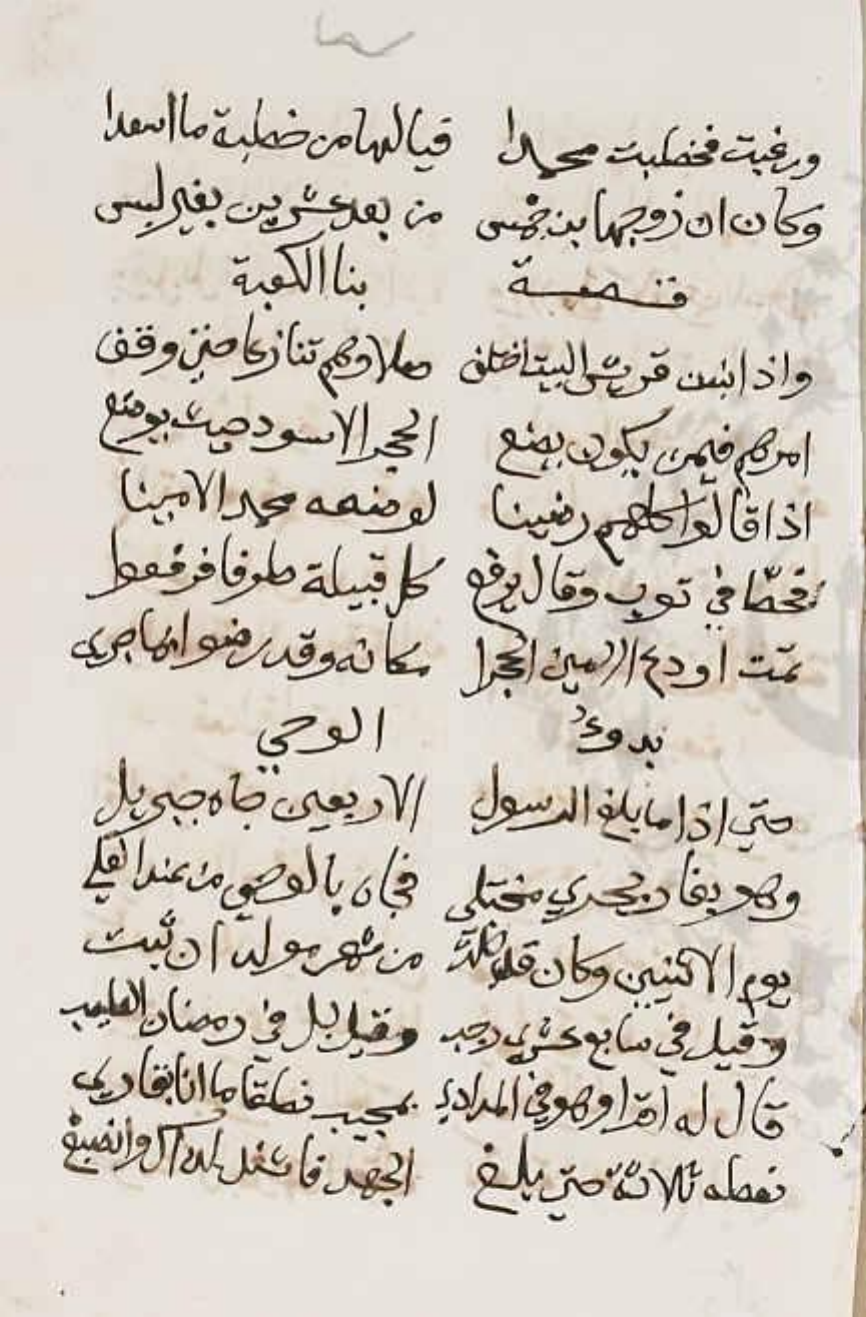 ورغبت فخطبت محمدا فيالها من خطبة ما اسعدا
وكان ان زوجها بن خمس من بعد عشرين بغير لبس
قصة بنا الكعبة
واذا ابنت قريش البيت اختلف ملاوهم تنازعا حتي وقف
امرهم فيمن يكون يضع الحجر الاسود حيث يوضع
اذا قالوا كلهم رضينا لوضعه محمد الامينا
فحط في توب وقال يرفع كل قبيلة طرفا فرفعوا
ثمت اودع الامين الحجرا مكانه وقد رضوا بما جري
بدوء الوحي
حتي اذا ما بلغ الرسول الاربعين جاه جبريل
وهو بغار بحري مختلي فجاه بالوحي من عند العلي
يوم الاثنين وكان قد من شهر مولد ان ثبت
وقيل في سابع عشري رجب وقيل بل في رمضان الطيب
قال له اقرا وهو في المراد يجيب نطقا ما انا بقاري
فغطه ثلاثة حتي بلغ الجهد فاشتد لذاك وانصبغ